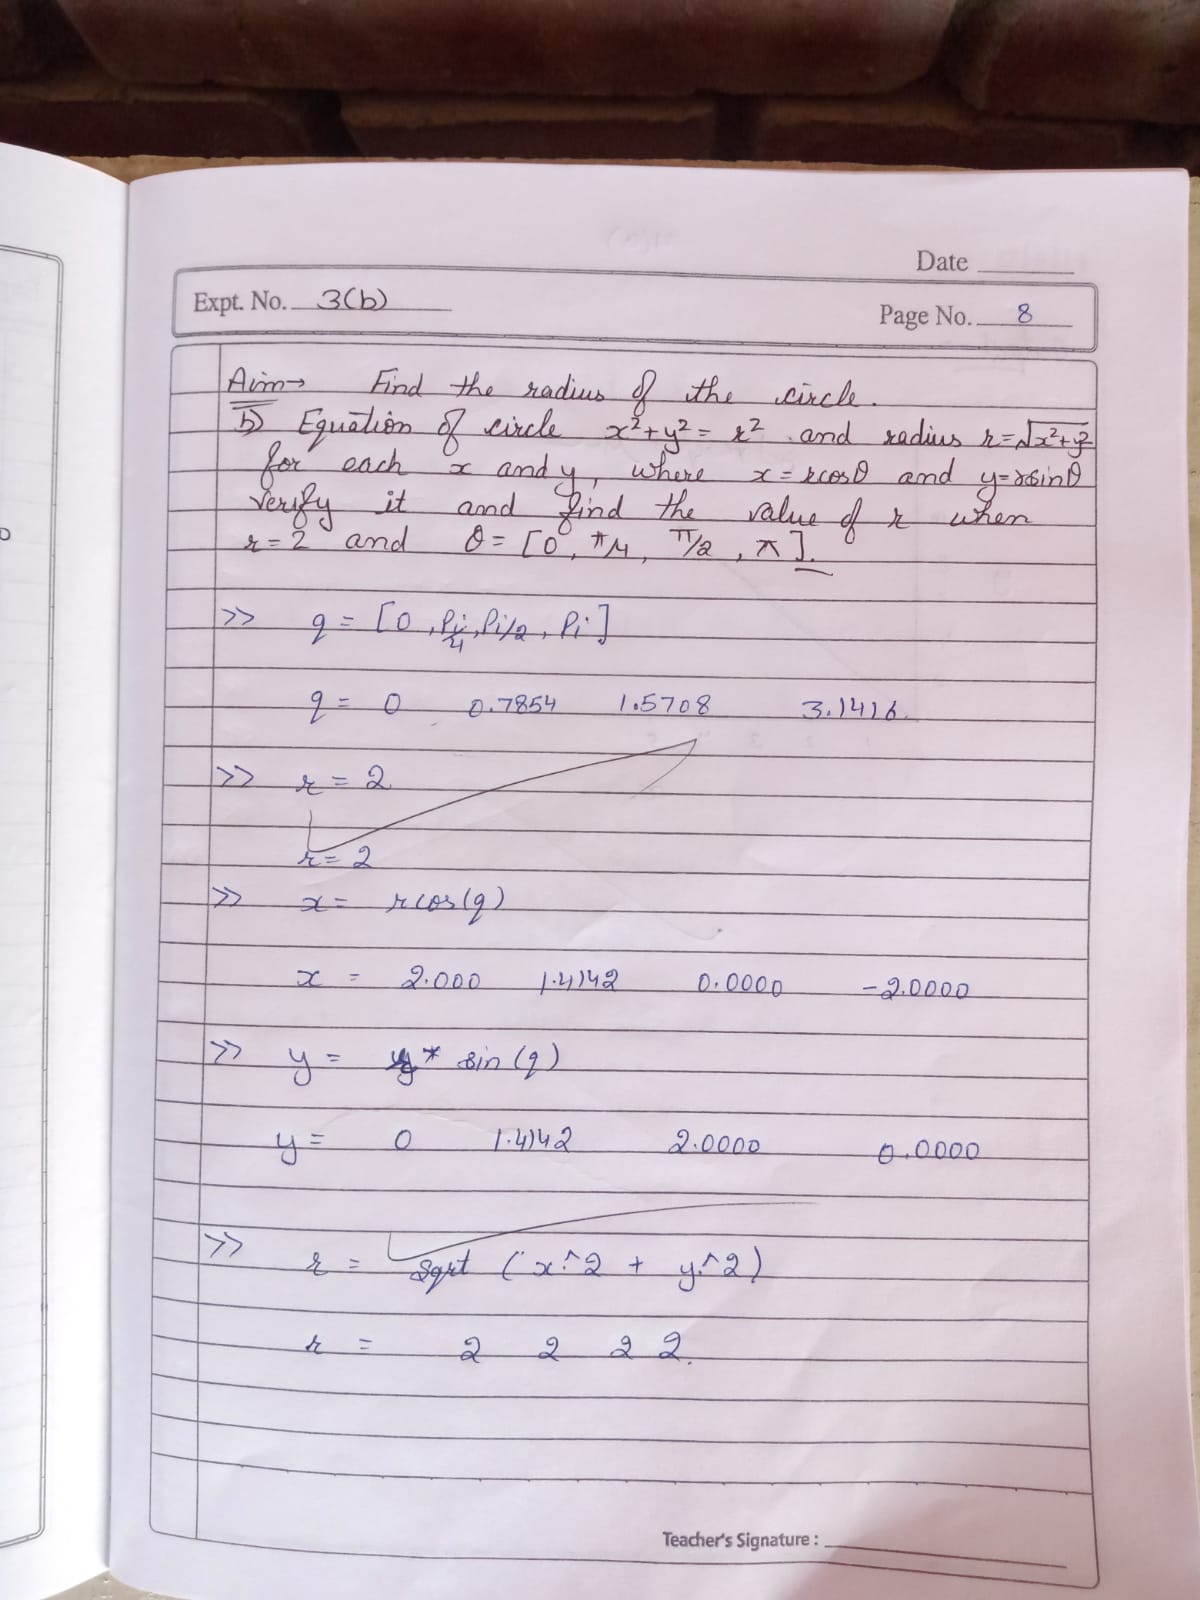 Date
Expt. No. 3(b)
Page No. 8
Aim→ Find the radius of the circle.
b) Equation of circle x²+y² = r² and radius r=√x²+y²
for each x and y, where x = rcosθ and y=rsinθ
verify it and find the value of r when
r=2 and θ= [0, π/4, π/2, π].
>> q = [0, Pi/4, Pi/2, Pi]
q = 0 0.7854 1.5708 3.1416.
>> r = 2
r = 2
>> x = rcos(q)
x = 2.000 1.4142 0.0000 -2.0000
>> y = * sin (q)
y = 0 1.4142 2.0000 0.0000
>> r = sqrt (x.^2 + y.^2)
r = 2 2 2 2.
Teacher's Signature :